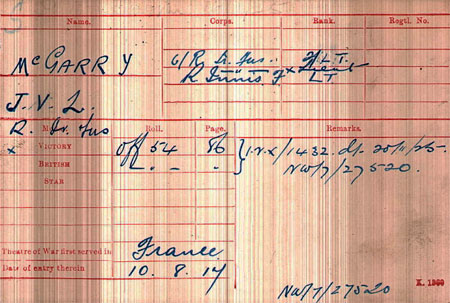 Name. Corps. Rank. Regtl. No.
McGARRY 6/R. Ir. Fus. T/Lt.
R Innis F x LT
J. V. L.
R. Ir. Fus
Roll. Page. Remarks.
x VICTORY Off 54 86 { I.V.X/1432. dt. 20/11/25.
BRITISH " - " } NW/7/27520.
STAR
Theatre of War first served in France
Date of entry therein 10. 8. 17
NW/7/27520 K. 1380